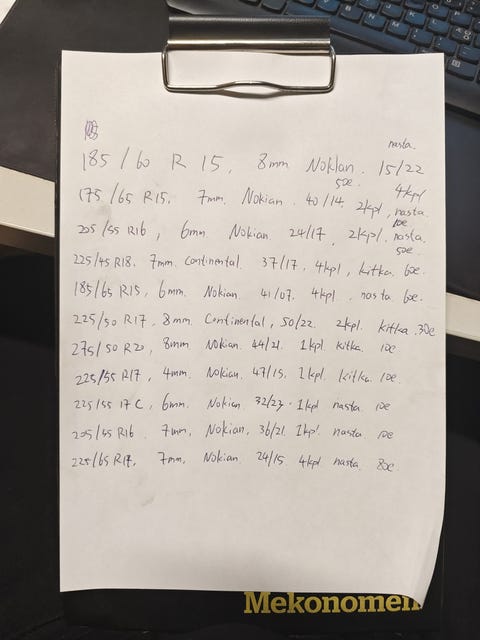 nasta.
185/60 R 15, 8mm Nokian 15/22
50e 4kpl
175/65 R15, 7mm. Nokian 40/14. 2kpl, nasta.
10e
205/55 R16, 6mm Nokian 24/17, 2kpl. nasta.
50e
225/45 R18. 7mm. Continental 37/17, 4kpl, kitka 60e.
185/65 R15, 6mm. Nokian. 41/07. 4kpl. nasta 60e.
225/50 R17, 8mm Continental, 50/22. 2kpl. kitka. 30e
275/50 R20, 8mm Nokian 44/21. 1kpl. kitka. 10e
225/55 R17, 4mm. Nokian. 47/15. 1kpl. kitka. 10e.
225/55 17 C, 6mm. Nokian 32/23. 1kpl nasta. 10e
205/45 R16. 7mm, Nokian, 36/21. 1kpl. nasta. 10e
225/65 R17, 7mm. Nokian 24/15 4kpl nasta. 80e
Mekonomen